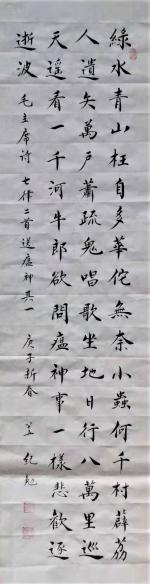 綠水青山枉自多華佗無奈小蟲何千村薜荔
人遺矢萬戶蕭疏鬼唱歌坐地日行八萬里巡
天遙看一千河牛郎欲問瘟神事一樣悲歡逐
逝波 毛主席诗 七律二首送瘟神其一 庚子新春